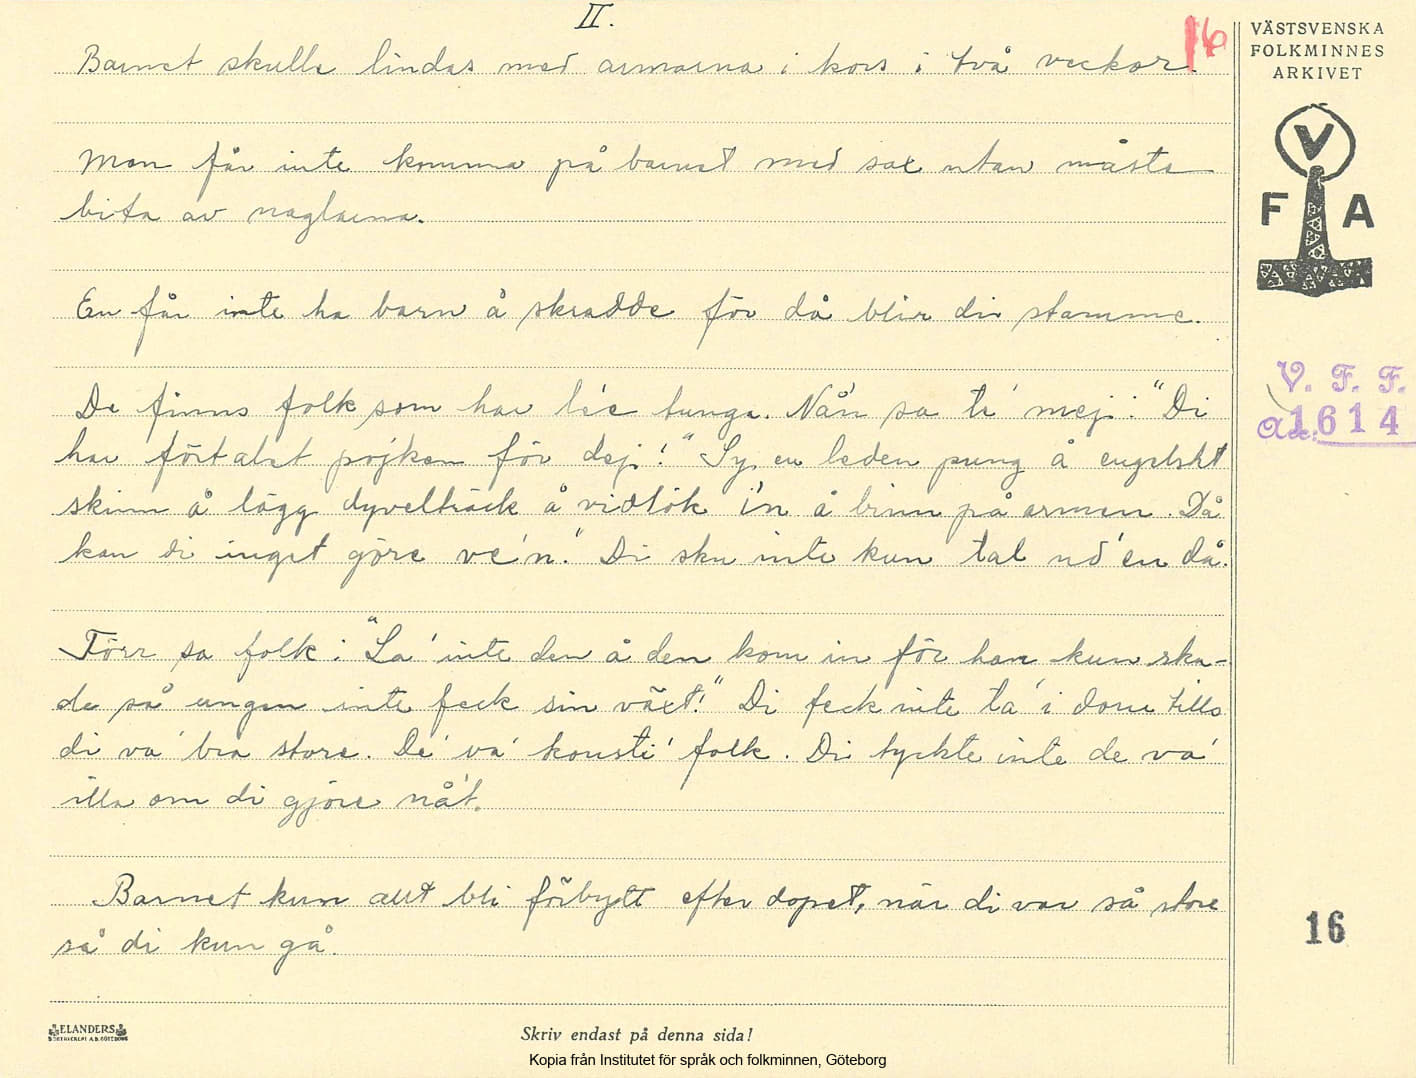 II.
16
Barnet skulle lindas med armarna i kors i två veckor.
Man får inte komma på barnet med sax utan måste
bita av naglarna.
En får inte ha barn å skradde för då blir di stamme.
De finns folk som har le'e tunge. Nå'n sa te' mej: "Di
har förtalat pojken för dej!" "Sy en leden pung å engelskt
skinn å lägg dyvelträck å vidlök i'n å binn på armen. Då
kan di inget göre ve'n." Di sku inte kun tal ud'en då.
Förr sa folk: "La' inte den å den kom in för han kun ska-
de så ungen inte feck sin växt!" Di feck inte ta' i dom tills
di va' bra store. De' va' konsti' folk. Di tyckte inte de va'
illa om di gjöre nå't.
Barnet kun allt bli förbytt efter dopet, när di var så store
så di kun gå.
VÄSTSVENSKA
FOLKMINNES
ARKIVET
V
F A
V. F. F.
Acc. 1614
16
ELANDERS
BOKTRYCKERI A.B. GÖTEBORG
Skriv endast på denna sida!
Kopia från Institutet för språk och folkminnen, Göteborg